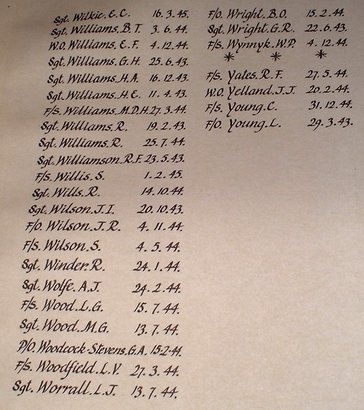 Sgt. Wilkie. E.C. 16. 3. 45.
Sgt. Williams. B.T. 3. 6. 44.
W.O. Williams. E.F. 4. 12. 44.
Sgt. Williams. G.H. 25. 6. 43.
Sgt. Williams. H.A. 16. 12. 43.
Sgt. Williams. H.E. 11. 4. 43.
F/s. Williams. M.D.H. 27. 3. 44.
Sgt. Williams. R. 19. 2. 43.
Sgt. Williams. R. 25. 7. 44.
Sgt. Williamson. R.F. 23. 5. 43.
F/s. Willis. S. 1. 2. 45.
Sgt. Wills. R. 14. 10. 44.
Sgt. Wilson. J.I. 20. 10. 43.
F/O. Wilson. J.R. 4. 11. 44.
F/s. Wilson. S. 4. 5. 44.
Sgt. Winder. R. 24. 1. 44.
Sgt. Wolfe. A.J. 24. 2. 44.
F/s. Wood. L.G. 15. 7. 44.
Sgt. Wood. M.G. 13. 7. 44.
P/O. Woodcock-Stevens. G.A. 15-2-44.
F/s. Woodfield. L.V. 27. 3. 44.
Sgt. Worrall. L.J. 13. 7. 44.
F/O. Wright. B.O. 15. 2. 44.
Sgt. Wright. G.R. 22. 6. 43.
F/s. Wynnyk. W.P. 4. 12. 44.
* * *
F/s. Yales. R.F. 27. 5. 44.
W.O. Yelland. J.J. 20. 2. 44.
F/s. Young. C. 31. 12. 44.
F/O. Young. L. 29. 3. 43.